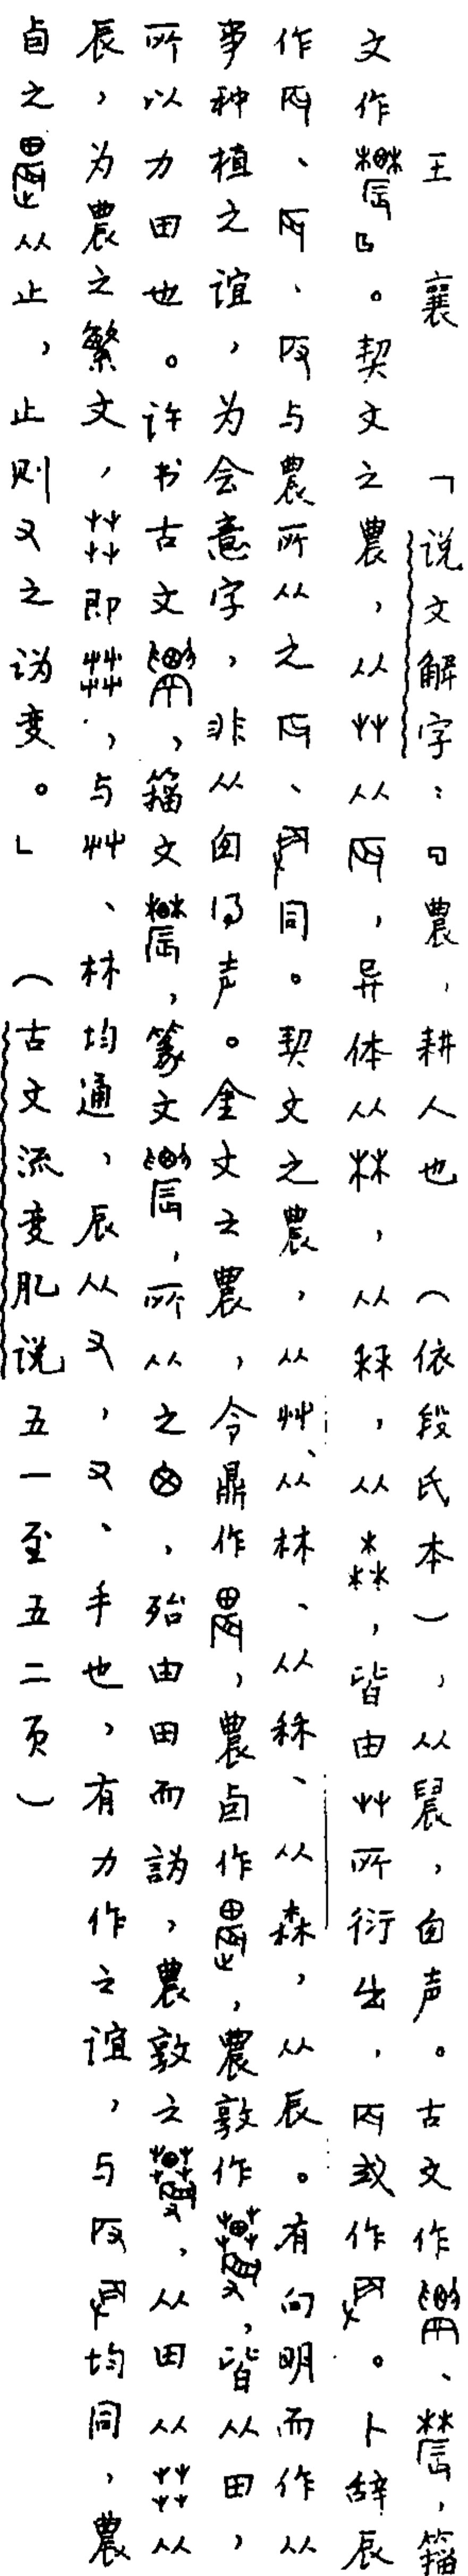 王襄 「说文解字：『農，耕人也（依段氏本），从䢅，囟声。古文作、，籀
文作』。契文之農，从艸从，异体从林，从秝，从森，皆由艸所衍出，或作。卜辞辰
作、、与農所从之、同。契文之農，从艸、从林、从秝、从森，从辰。有向明而作从
事种植之谊，为会意字，非从囟得声。金文之農，令鼎作，農卣作，農敦作，皆从田，
所以力田也。许书古文，籀文，篆文，所从之，殆由田而譌，農敦之，从田从茻从
辰，为農之繁文，茻即茻，与艸、林均通，辰从又，又、手也，有力作之谊，与均同，農
卣之从止，止则又之讹变。」（古文流变肊说五一至五二页）